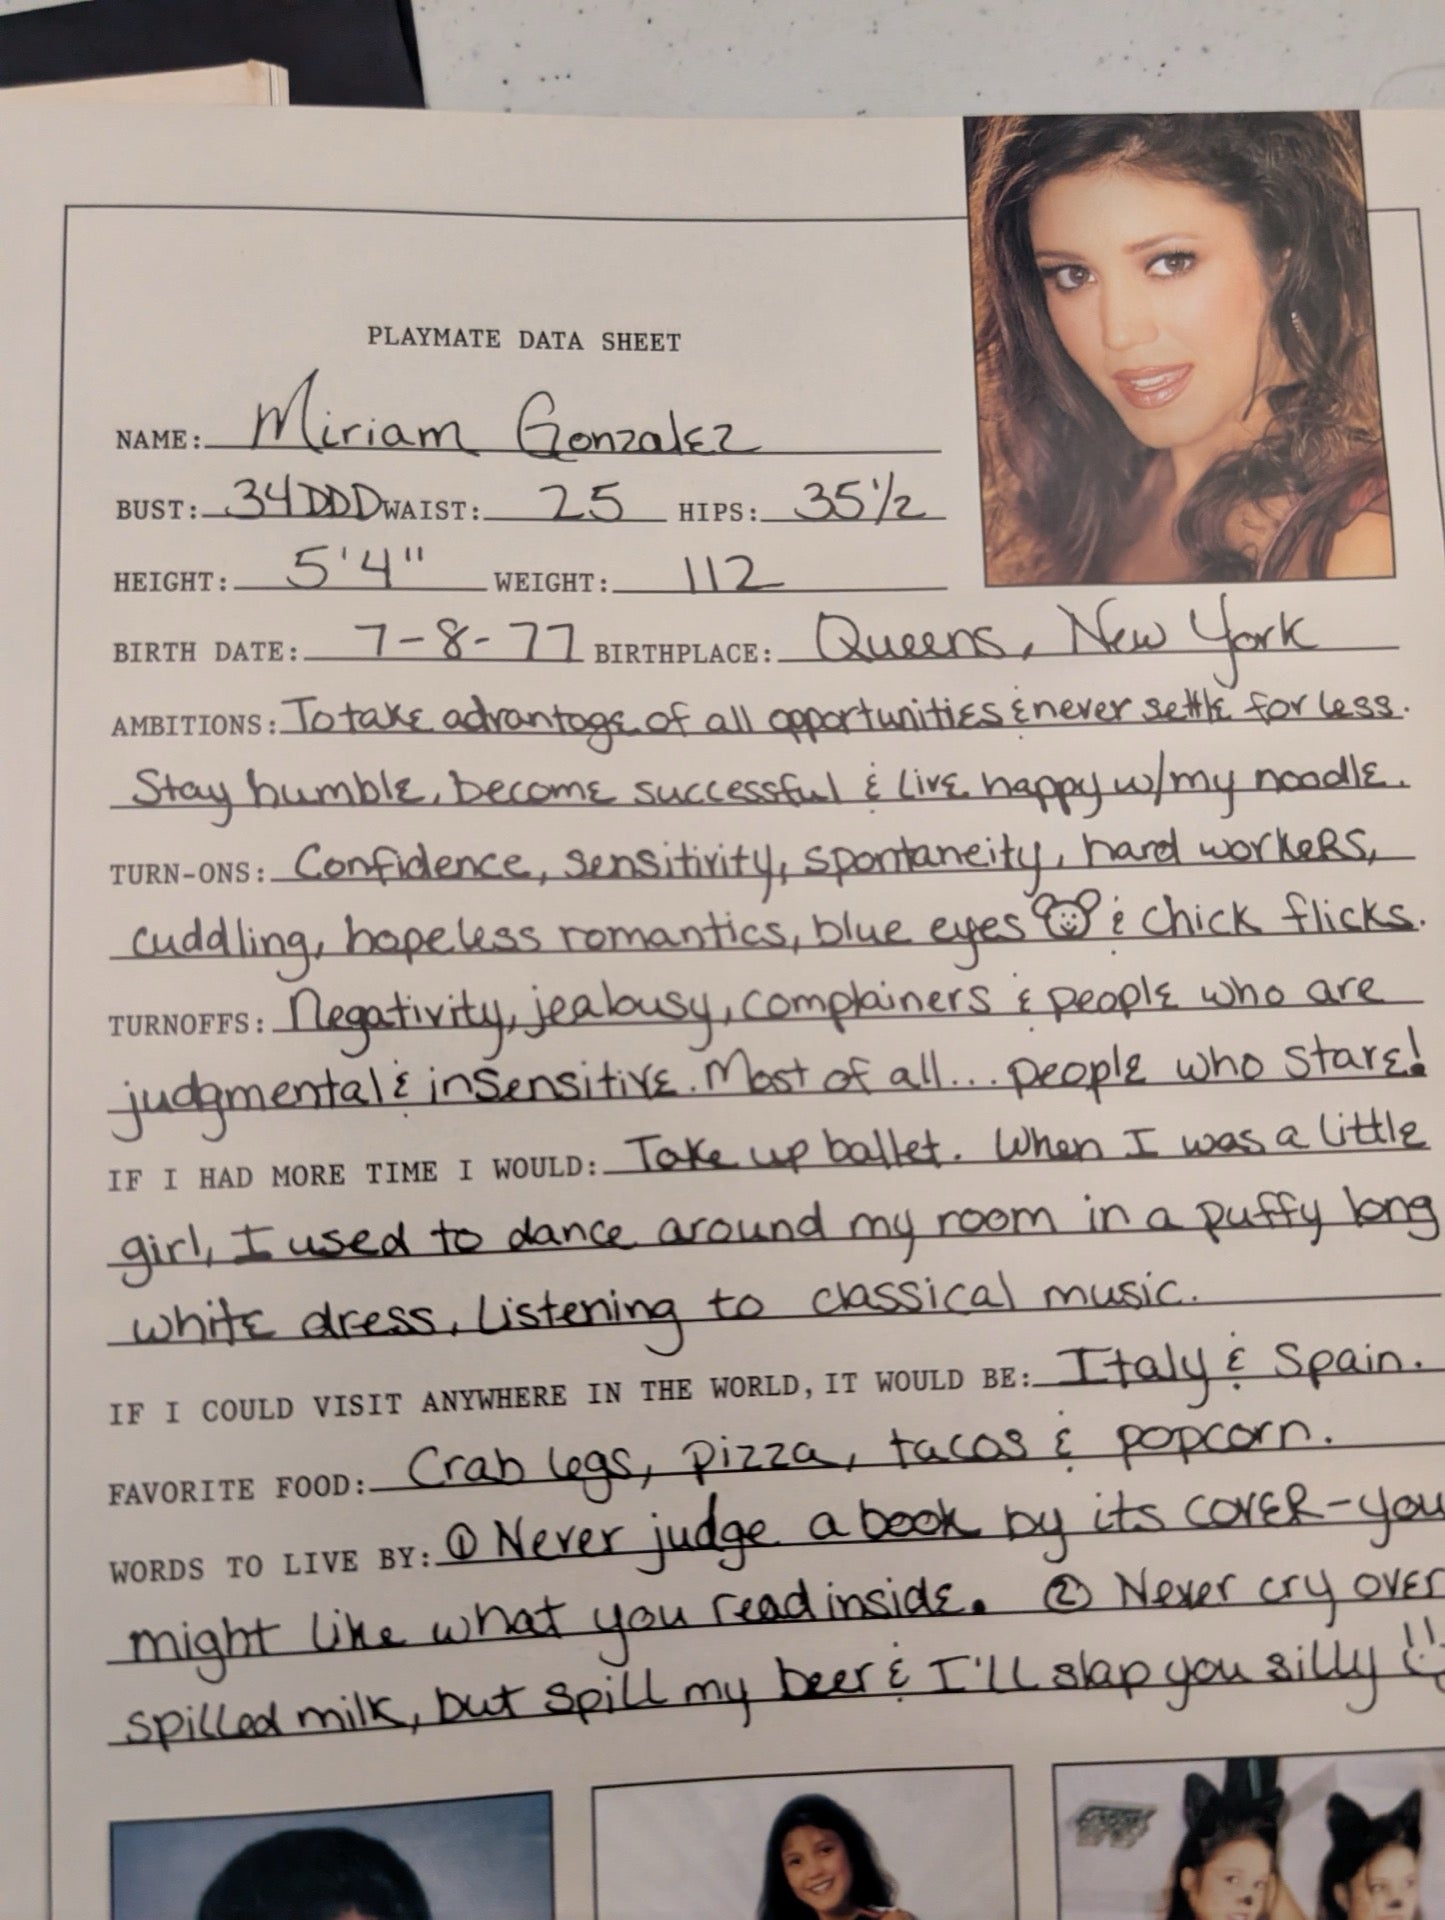 PLAYMATE DATA SHEET
NAME: Miriam Gonzalez
BUST: 34DDD WAIST: 25 HIPS: 35 1/2
HEIGHT: 5'4" WEIGHT: 112
BIRTH DATE: 7-8-77 BIRTHPLACE: Queens, New York
AMBITIONS: To take advantage of all opportunities & never settle for less.
Stay humble, become successful & live happy w/my noodle.
TURN-ONS: Confidence, sensitivity, spontaneity, hard workers,
cuddling, hopeless romantics, blue eyes & chick flicks.
TURNOFFS: Negativity, jealousy, complainers & people who are
judgmental & insensitive. Most of all... people who stare!
IF I HAD MORE TIME I WOULD: Take up ballet. When I was a little
girl, I used to dance around my room in a puffy long
white dress, listening to classical music.
IF I COULD VISIT ANYWHERE IN THE WORLD, IT WOULD BE: Italy & Spain.
FAVORITE FOOD: Crab legs, pizza, tacos & popcorn.
WORDS TO LIVE BY: ① Never judge a book by its cover-you
might like what you read inside. ② Never cry over
spilled milk, but spill my beer & I'll slap you silly